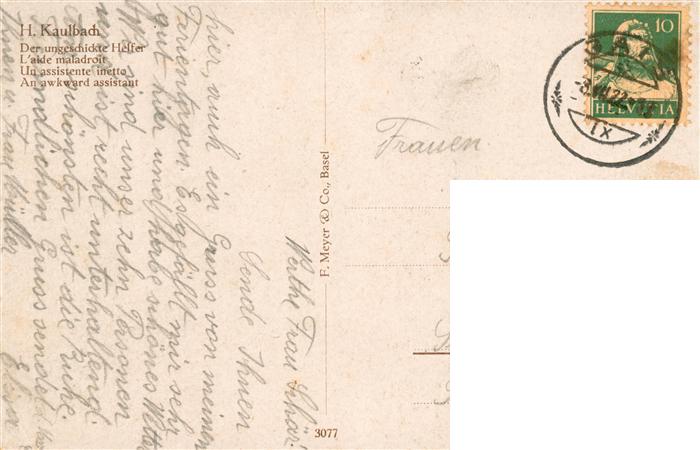 H. Kaulbach
Der ungeschickte Helfer
L'aide maladroit
Un assistente inetto
An awkward assistant
10
HELVETIA
IX
F. Meyer & Co., Basel
3077
Frauen
Werthe Frau Schär!
Sende Ihnen
hier, auch ein Gruss von meinen
Ferientagen. Es gefällt mir sehr
gut hier unsre habe schönes Wetter
Wir sind unser zehn Personen
ist recht unterhaltend.
schönsten ist die Ruhe.
Gruss sendet
Ihnen u. Frau Müller